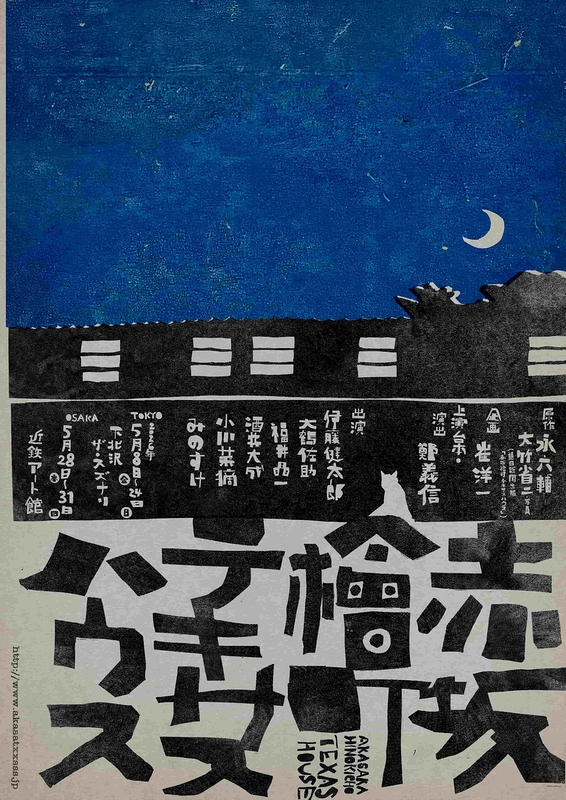 原作
永六輔
大竹省二 写真
企画
崔洋一
上演台本・
演出
鄭義信
出演
伊藤健太郎
大鶴佐助
福井晶一
酒井大成
小川菜摘
みのすけ
TOKYO
2026年
5月8日㊎~24日㊐
下北沢
ザ・スズナリ
OSAKA
5月28日㊍~31日㊐
近鉄アート館
赤坂
檜町
テキサス
ハウス
AKASAKA
HINOKICHO
TEXAS
HOUSE
http://www.akasatxxsss.jp